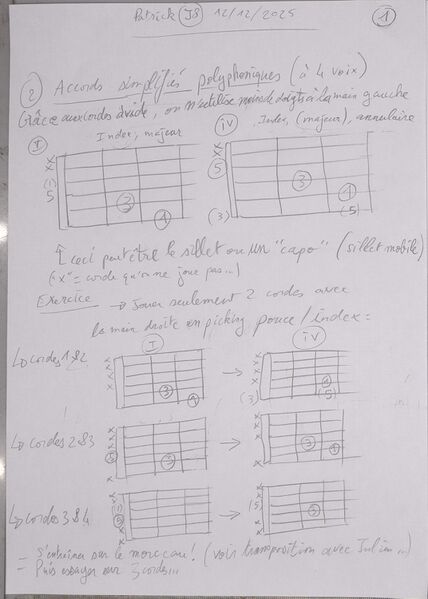 Patrick (JS) 12/12/2025 ①
② Accords simplifiés polyphoniques (à 4 voix)
Grâce aux cordes à vide, on n'utilise moins de doigts à la main gauche
Index, majeur Index, (majeur), annulaire
I IV
x x
x x
(1) 5
5
3 3
1 1
(3) (5)
ceci peut être le sillet ou un "capo" (sillet mobile)
("x" = corde qu'on ne joue pas...)
Exercice → Jouer seulement 2 cordes avec
la main droite en picking pouce / index =
I IV
↳ cordes 1&2
3 1 → 1
(3) (5)
↳ cordes 2&3
3 → 3 1
↳ cordes 3&4
→ (5) 3
- S'entraîner sur le morceau! (voir transposition avec Julien...)
- Puis essayer sur 3 cordes...